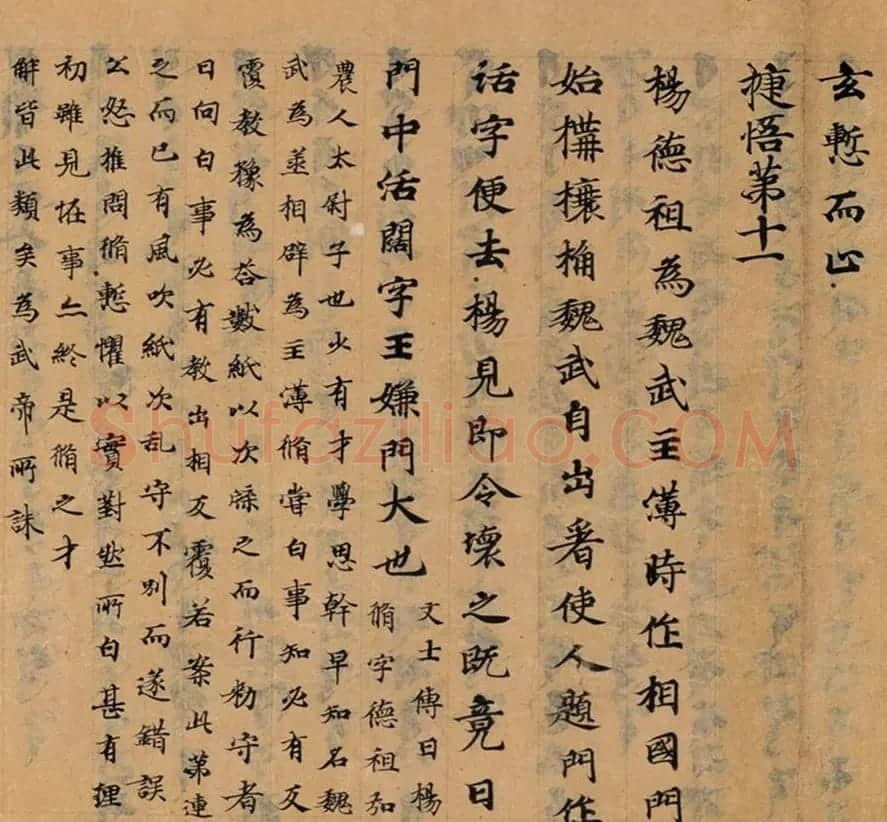 玄慙而止
捷悟第十一
楊德祖為魏武主簿時作相國門
始構欀桷魏武自出看使人題門作
活字便去楊見即令壞之既竟曰
門中活闊字王嫌門大也
文士傳曰楊
脩字德祖弘
農人太尉子也少有才學思幹早知名魏
武為丞相辟為主薄脩嘗白事知必有反
覆教豫為荅數紙以次牒之而行勑守者
曰向白事必有教出相反覆若案此第連
之而已有風吹紙次乱守不別而遂錯誤
公怒推問脩慙懼以實對然所白甚有理
初雖見怪事亦終是脩之才
解皆此類矣為武帝所誅
Shufaziliao.COM